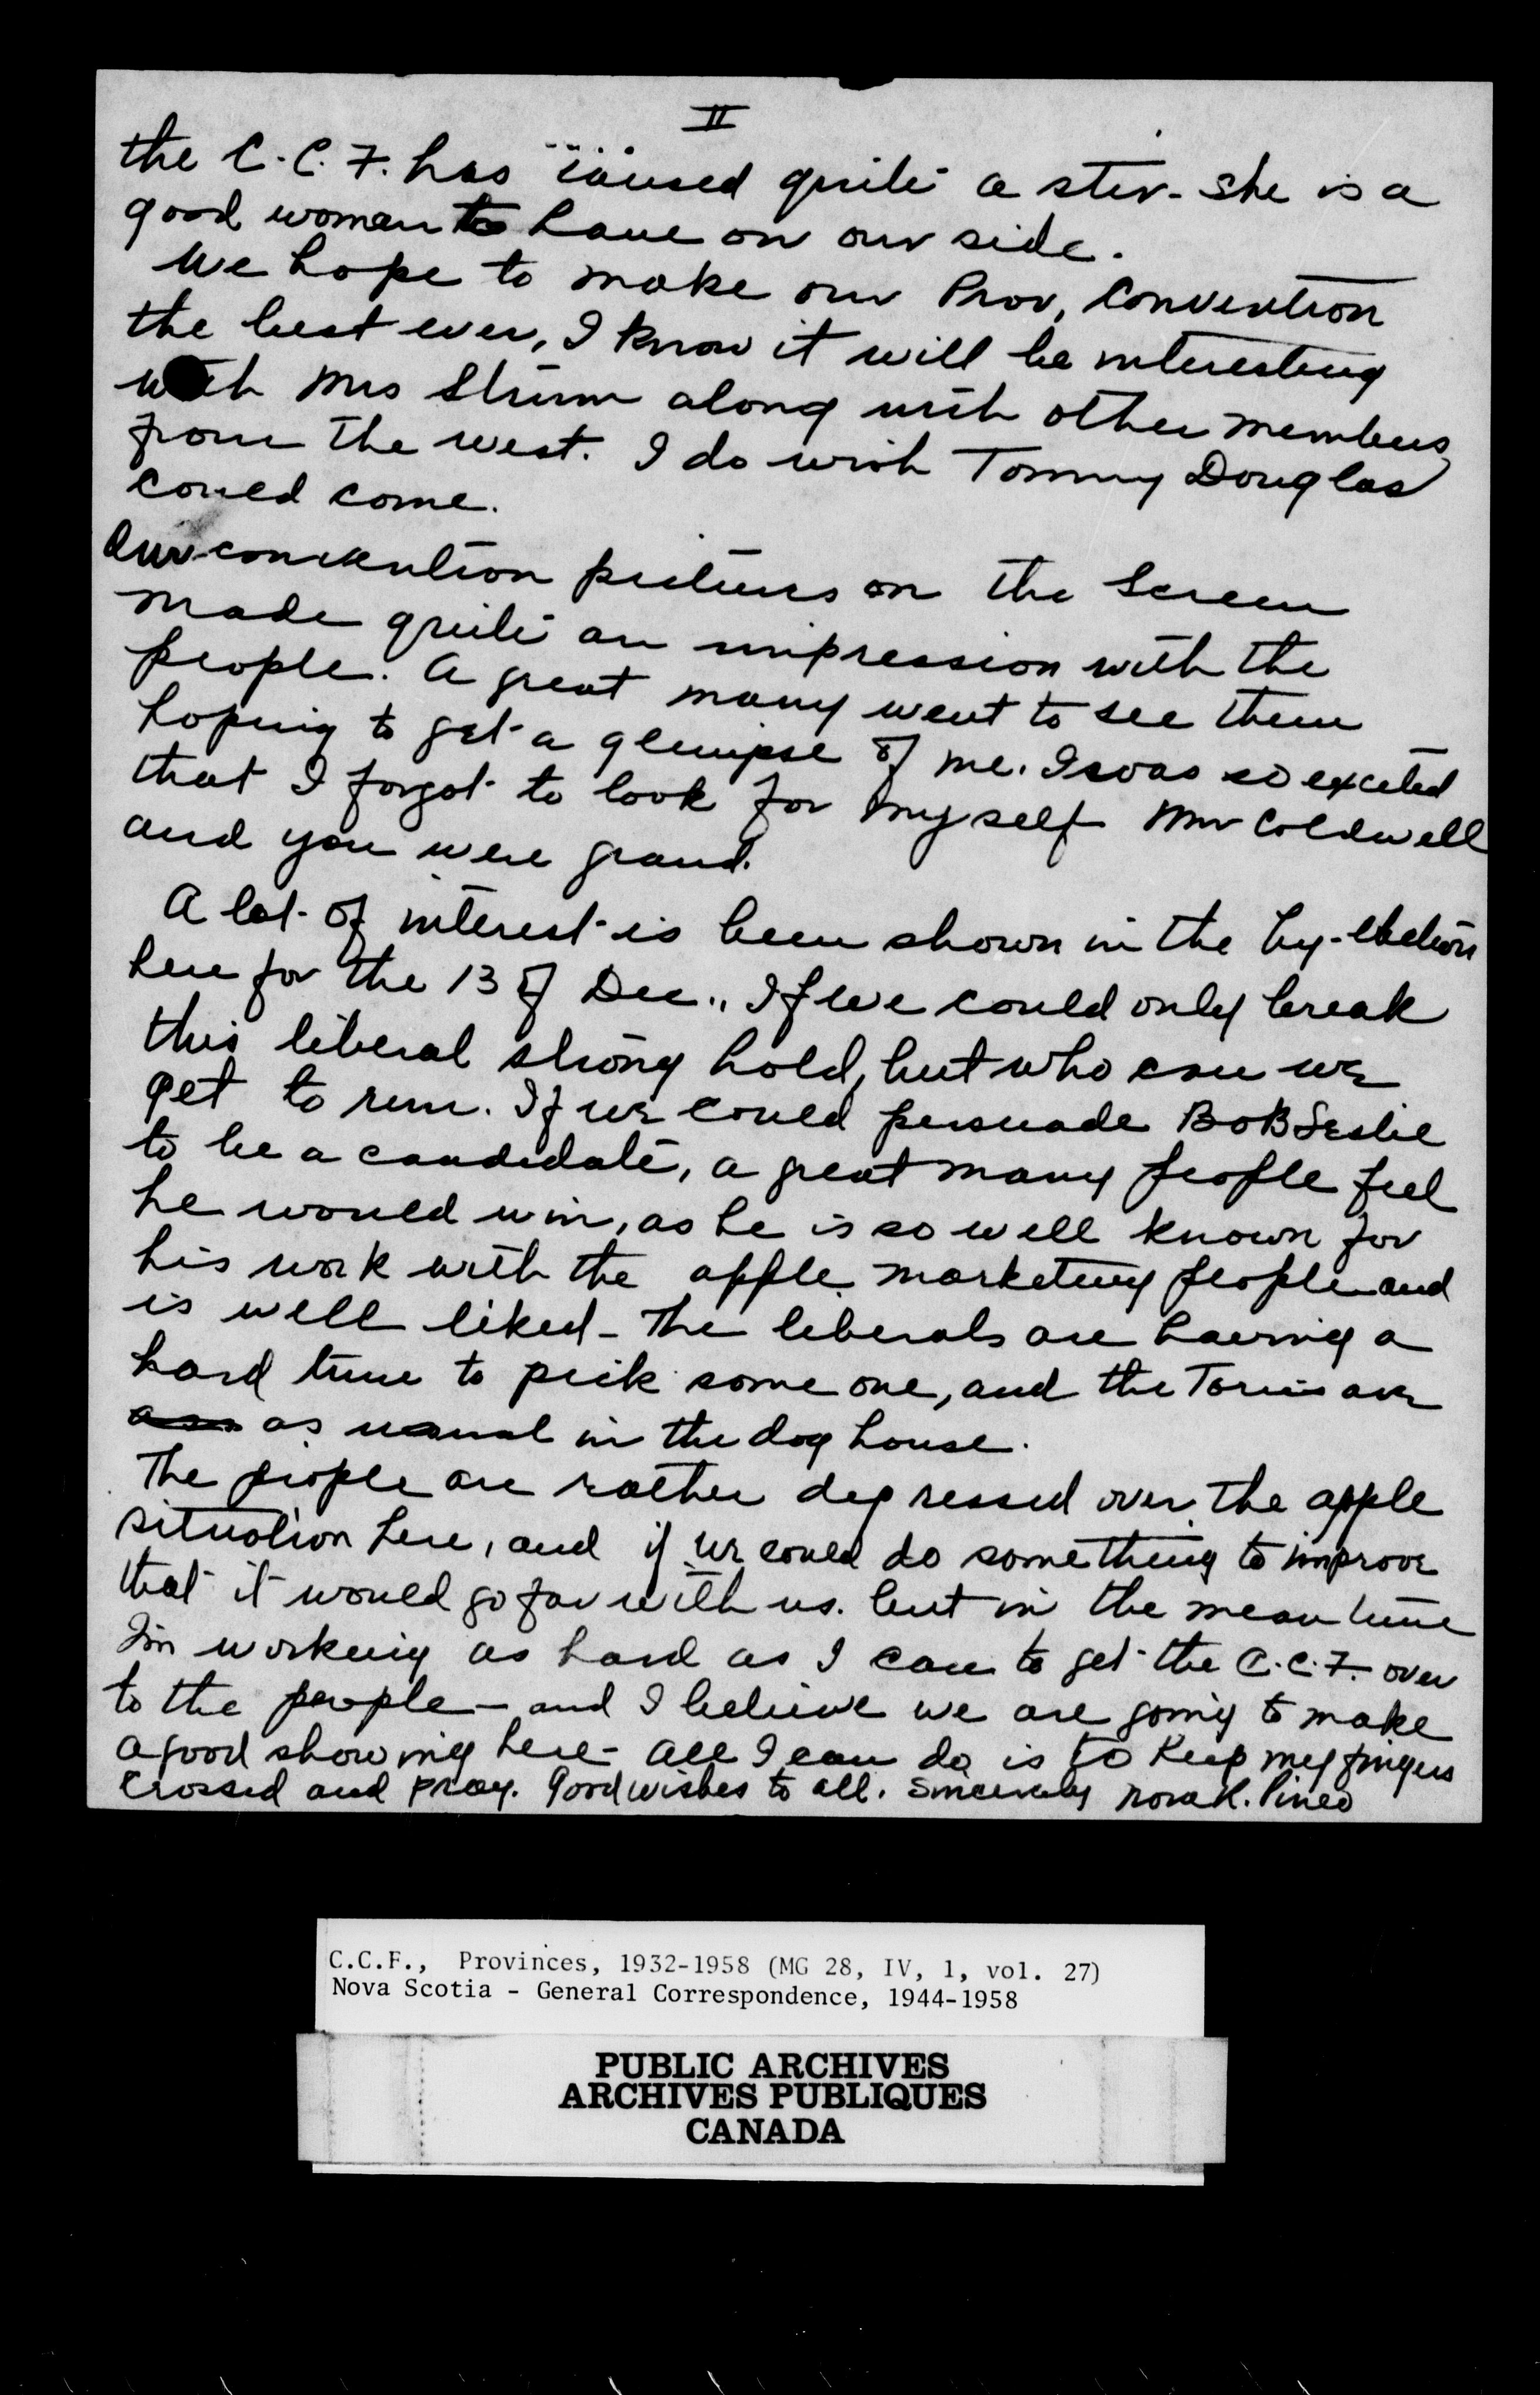 II
the C.C.F. has caused quite a stir - She is a
good woman to have on our side.
We hope to make our Prov, Convention
the best ever, I know it will be interesting
with Mrs Strum along with other members
from the west. I do wish Tommy Douglas
could come.
Our convention pictures on the Screen
made quite an impression with the
people. A great many went to see them
hoping to get a glimpse of me. I was so excited
that I forgot to look for myself Mr Coldwell
and you were grand.
A lot of interest is been shown in the by-election
here for the 13 of Dec., If we could only break
this liberal strong hold, but who can we
get to run. If we could persuade Bob Leslie
to be a candidate, a great many people feel
he would win, as he is so well known for
his work with the apple marketing people and
is well liked - The liberals are having a
hard time to pick some one, and the Tories are
as usual in the dog house.
The people are rather depressed over the apple
situation here, and if we could do something to improve
that it would go far with us. but in the mean time
I'm working as hard as I can to get the C.C.F. over
to the people - and I believe we are going to make
a good showing here - All I can do is to keep my fingers
crossed and pray. Good wishes to all. Sincerely Nora K. Pineo
C.C.F., Provinces, 1932-1958 (MG 28, IV, 1, vol. 27)
Nova Scotia - General Correspondence, 1944-1958
PUBLIC ARCHIVES
ARCHIVES PUBLIQUES
CANADA